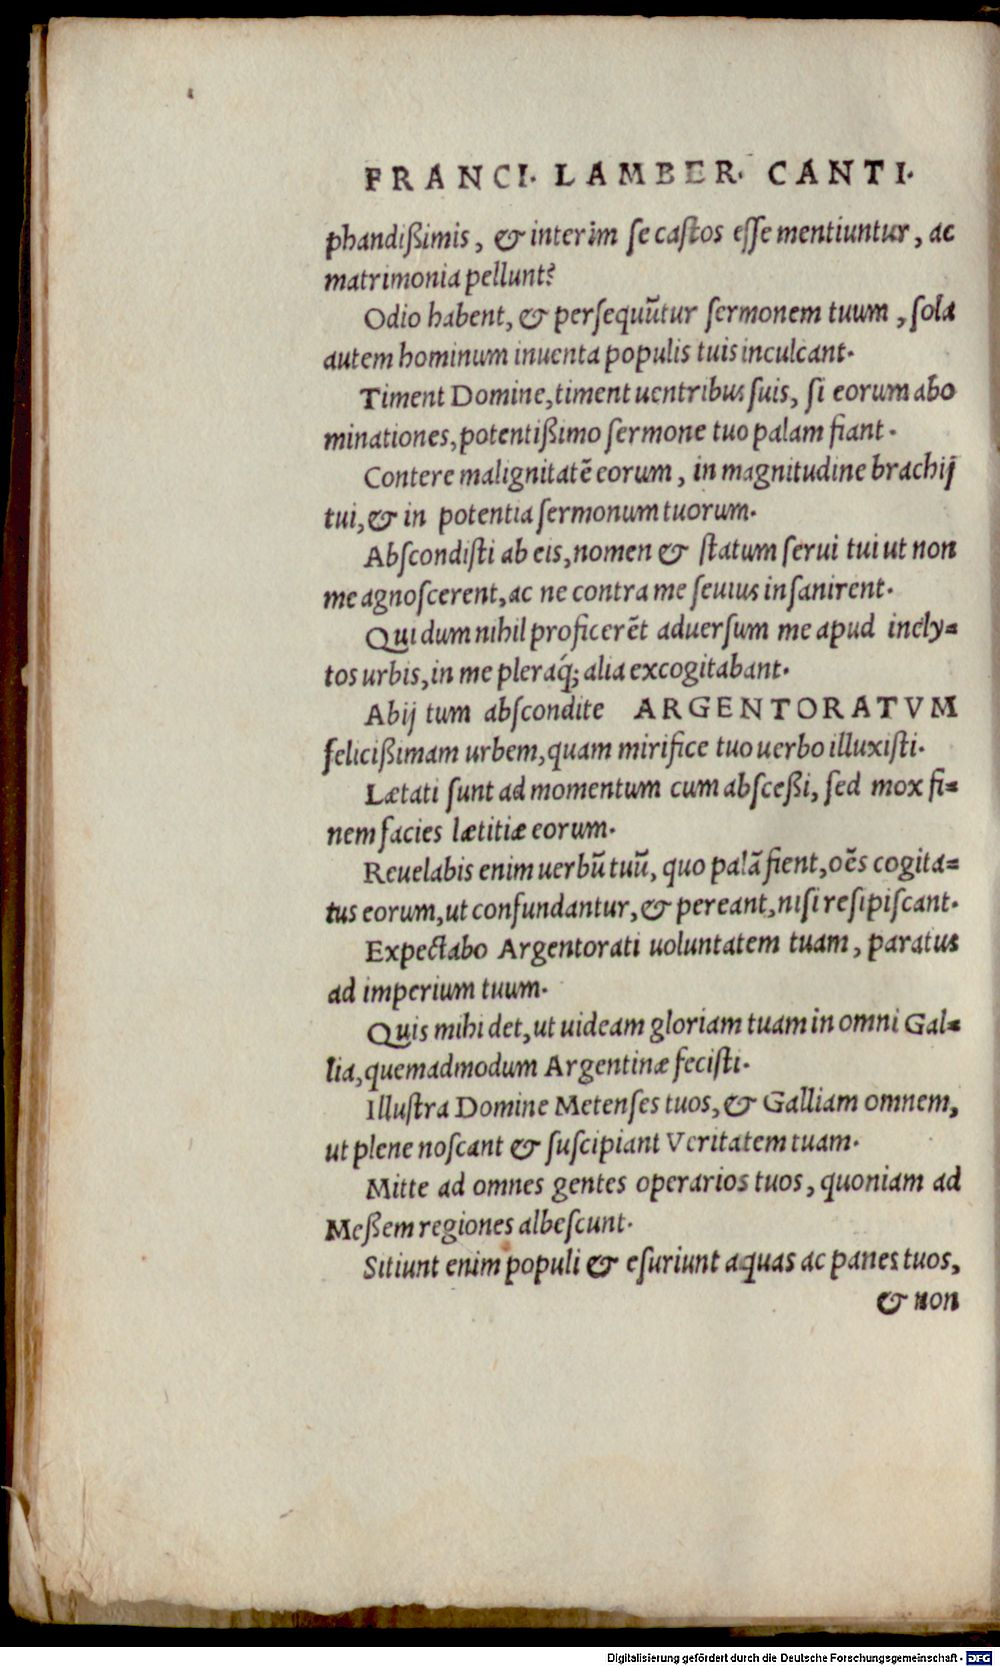 FRANCI. LAMBER. CANTI.
phandißimis, & interim se castos esse mentiuntur, ac
matrimonia pellunt?
Odio habent, & persequũtur sermonem tuum, sola
autem hominum inuenta populis tuis inculcant.
Timent Domine, timent uentribus suis, si eorum abo
minationes, potentißimo sermone tuo palam fiant.
Contere malignitatẽ eorum, in magnitudine brachij
tui, & in potentia sermonum tuorum.
Abscondisti ab eis, nomen & statum serui tui ut non
me agnoscerent, ac ne contra me seuius insanirent.
Qui dum nihil proficerẽt aduersum me apud incly=
tos urbis, in me pleraq́; alia excogitabant.
Abij tum abscondite ARGENTORATVM
felicißimam urbem, quam mirifice tuo uerbo illuxisti.
Lætati sunt ad momentum cum absceßi, sed mox fi=
nem facies lætitiæ eorum.
Reuelabis enim uerbũ tuũ, quo palã fient, oẽs cogita=
tus eorum, ut confundantur, & pereant, nisi resipiscant.
Expectabo Argentorati uoluntatem tuam, paratus
ad imperium tuum.
Quis mihi det, ut uideam gloriam tuam in omni Gal=
lia, quemadmodum Argentinæ fecisti.
Illustra Domine Metenses tuos, & Galliam omnem,
ut plene noscant & suscipiant Veritatem tuam.
Mitte ad omnes gentes operarios tuos, quoniam ad
Meßem regiones albescunt.
Sitiunt enim populi & esuriunt aquas ac panes tuos,
& non
Digitalisierung gefördert durch die Deutsche Forschungsgemeinschaft - DFG